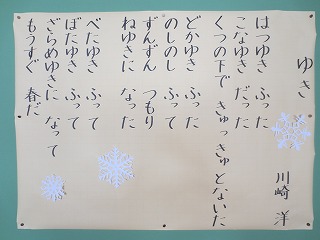 ゆき
川崎 洋
はつゆき ふった
こなゆき だった
くつの下で きゅっきゅとないた
どかゆき ふった
のしのし ふって
ずんずん つもり
ねゆきに なった
べたゆき ふって
ぼたゆき ふって
ざらめゆきに なって
もうすぐ 春だ